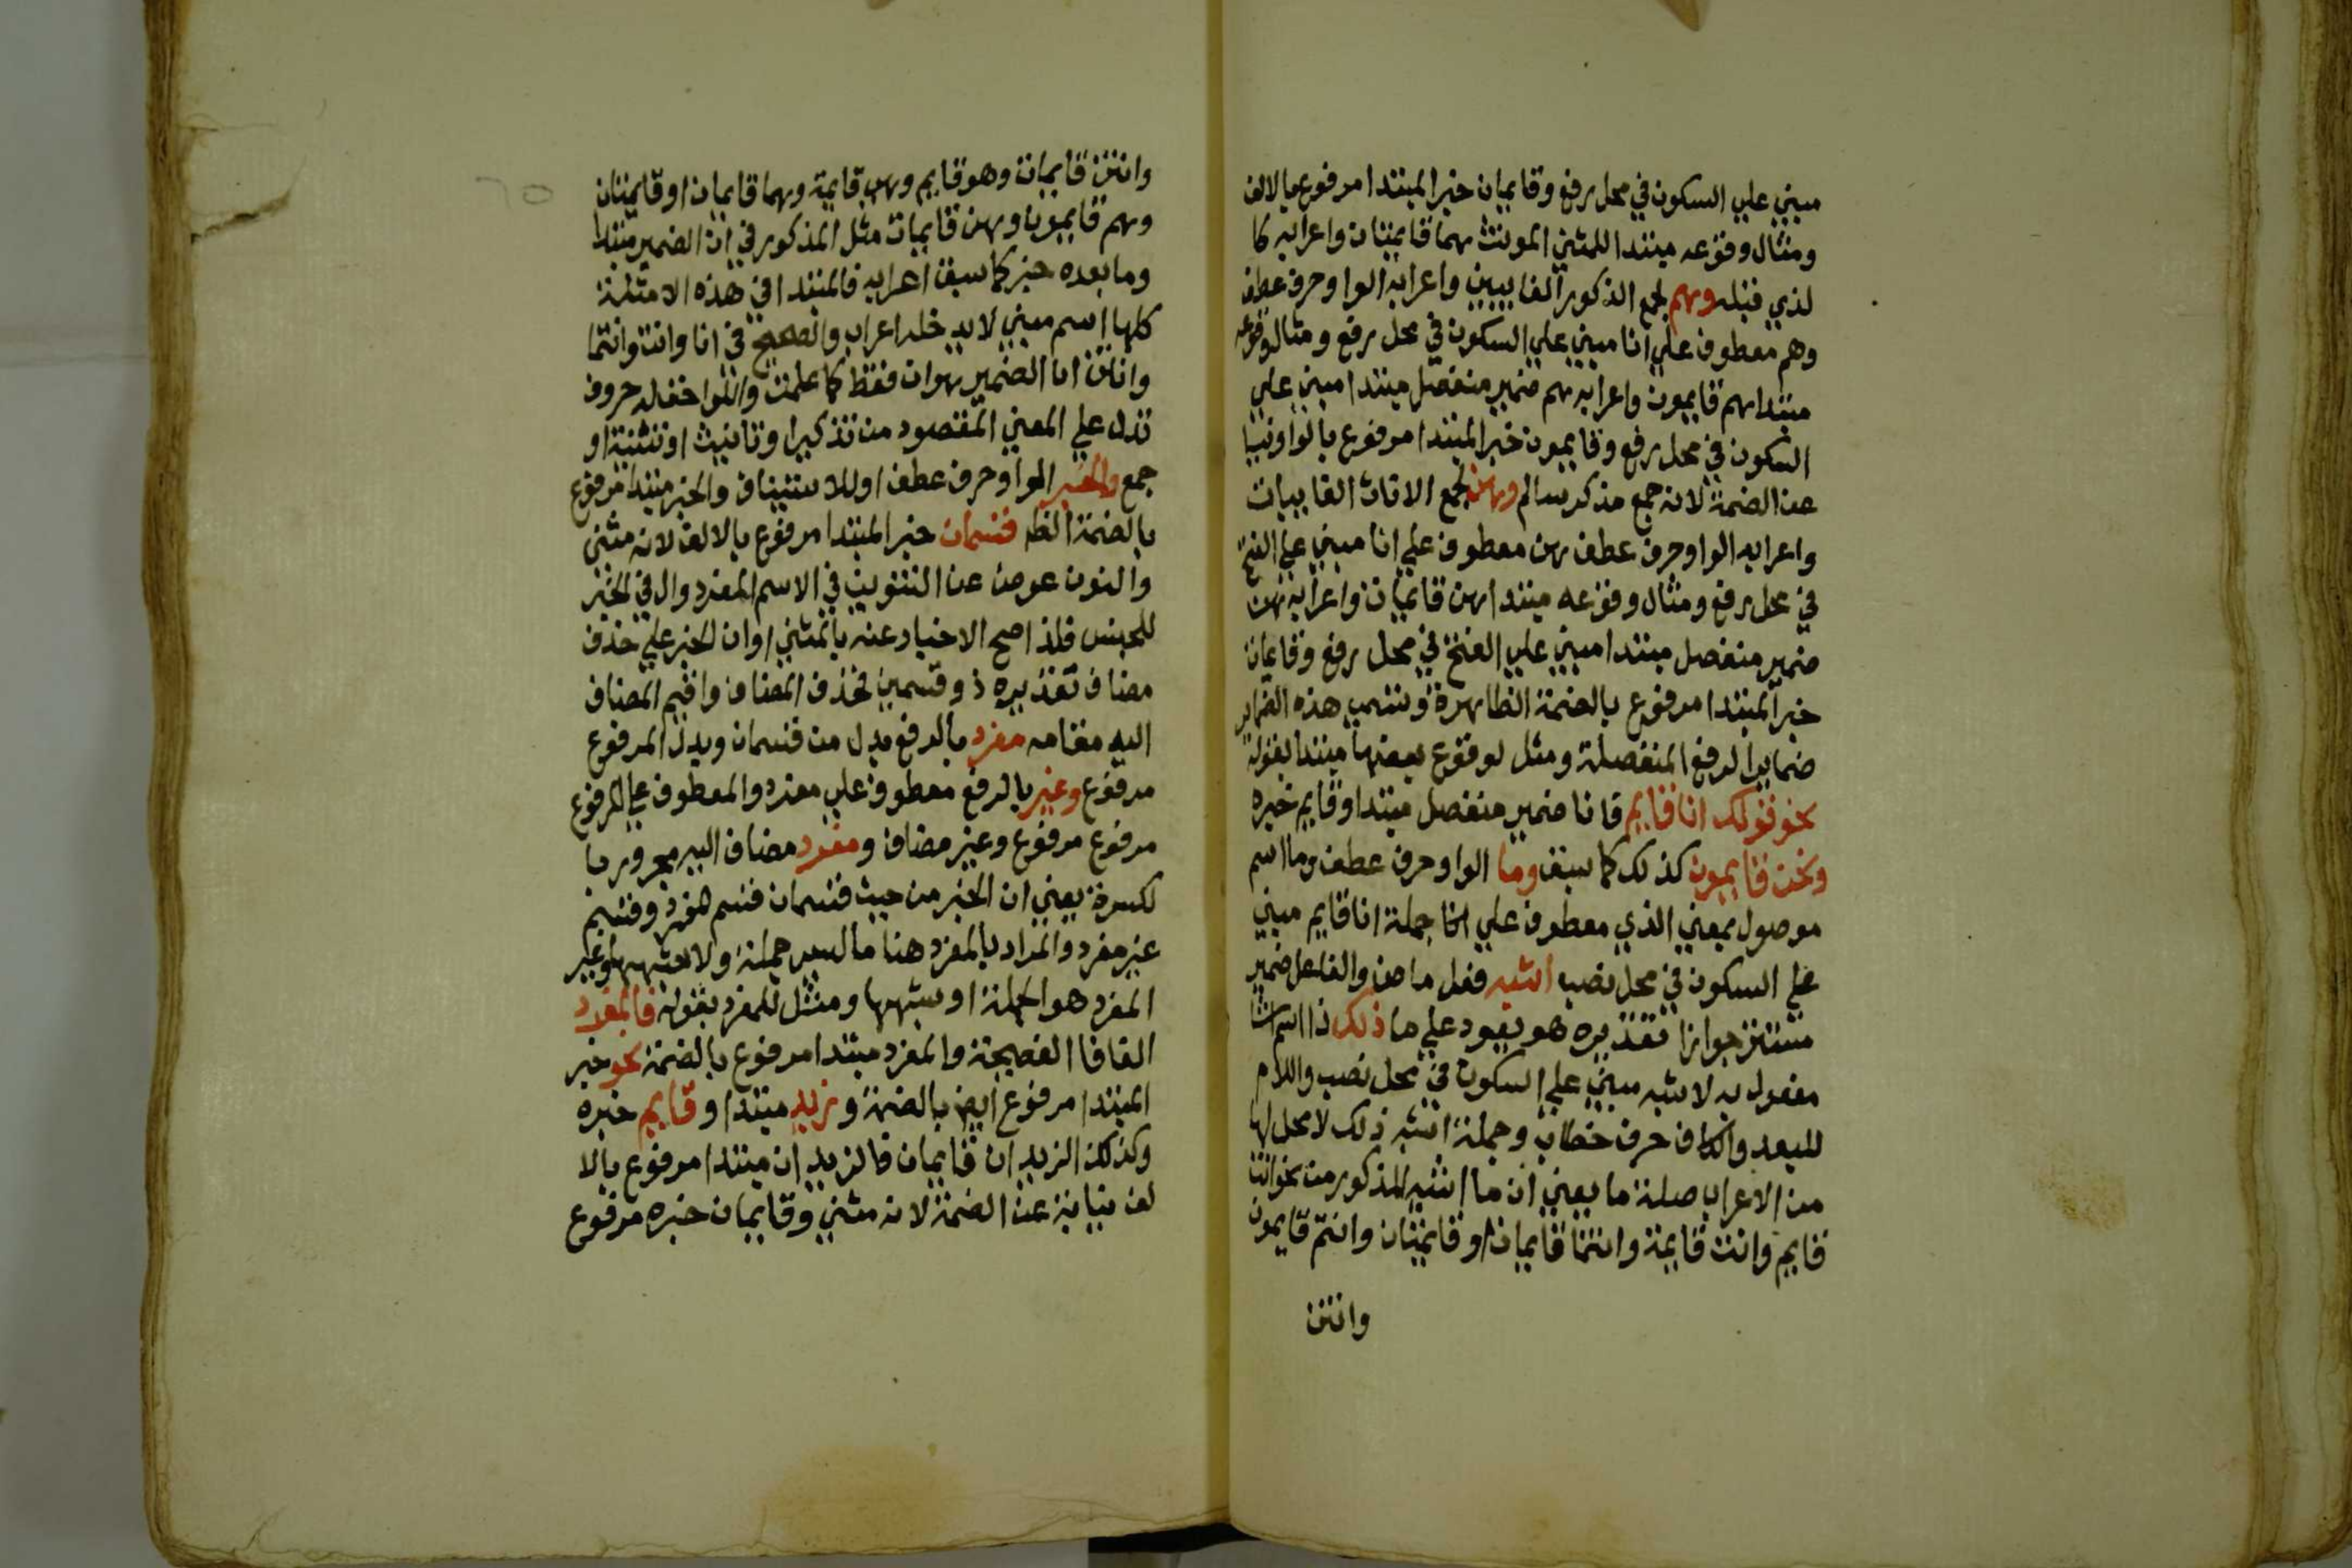 مبني علي السكون في محل رفع وقايمان خبر المبتدا مرفوع بالالف
ومثال وقوعه مبتدا للمثني المونث هما قايمتان واعرابه كا
لذي قبله وهم لجمع الذكور الغايبين واعرابه الواو حرف عطف
وهم معطوف علي انا مبني علي السكون في محل رفع ومثال وقوعه
مبتدا هم قايمون واعرابه هم ضمير منفصل مبتدا مبني علي
السكون في محل رفع وقايمون خبر المبتدا مرفوع بالواو نيبا
عن الضمة لانه جمع مذكر سالم وهن لجمع الاناث الغايبات
واعرابه الواو حرف عطف هن معطوف علي انا مبني علي الفتح
في محل رفع ومثال وقوعه مبتدا هن قايمات واعرابه هن
ضمير منفصل مبتدا مبني علي الفتح في محل رفع وقايمات
خبر المبتدا مرفوع بالضمة الظاهرة وتسمي هذه الضماير
ضماير الرفع المنفصلة ومثل لوقوع بعضها مبتدا بقوله
نحو قولك انا قايم فانا ضمير منفصل مبتدا وقايم خبره
ونحن قايمون كذلك كما سبق وما الواو حرف عطف وما اسم
موصول بمعني الذي معطوف علي جملة انا قايم مبني
علي السكون في محل نصب اشبه فعل ماض والفاعل ضمير
مستتر جوازا تقديره هو يعود علي ما ذلك ذا اسم اشا
مفعول به لاشبه مبني علي السكون في محل نصب واللام
للبعد والكاف حرف خطاب وجملة اشبه ذلك لا محل لها
من الاعراب صلة ما يعني ان ما اشبه المذكور من نحو انت
قايم وانت قايمة وانتما قايمان او قايمتان وانتم قايمون
وانتن
وانتن قايمات وهو قايم وهي قايمة وهما قايمان او قايمتان
وهم قايمون وهن قايمات مثل المذكور في ان الضمير مبتدا
وما بعده خبر كما سبق اعرابه فالمبتدا في هذه الامثلة
كلها اسم مبني لا يدخله اعراب والصحيح في انا وانت وانتما
وانتن ان الضمير هو ان فقط كما علمت واللواحق له حروف
تدل علي المعني المقصود من تذكير او تانيث او تثنية او
جمع والخبر الواو حرف عطف او للاستيناف والخبر مبتدا مرفوع
بالضمة الظه قسمان خبر المبتدا مرفوع بالالف لانه مثني
والنون عوض عن التنوين في الاسم المفرد وال في الخبر
للجنس فلذا صح الاخبار عنه بالمثني او ان الخبر علي حذف
مضاف تقديره ذو قسمين فحذف المضاف واقيم المضاف
اليه مقامه مفرد بالرفع بدل من قسمان وبدل المرفوع
مرفوع وغير بالرفع معطوف علي مفرد والمعطوف علي المرفوع
مرفوع مرفوع وغير مضاف ومفرد مضاف اليه مجرور با
لكسرة يعني ان الخبر من حيث قسمان قسم مفرد وقسم
غير مفرد والمراد بالمفرد هنا ما ليس جملة ولا شبهها وغير
المفرد هو الجملة او شبهها ومثل للمفرد بقوله فالمفرد
الفا فا الفصيحة والمفرد مبتدا مرفوع بالضمة نحو خبر
المبتدا مرفوع ايض بالضمة وزيد مبتدا وقايم خبره
وكذلك الزيدان قايمان فالزيدان مبتدا مرفوع بالا
لف نيابة عن الضمة لانه مثني وقايمان خبره مرفوع